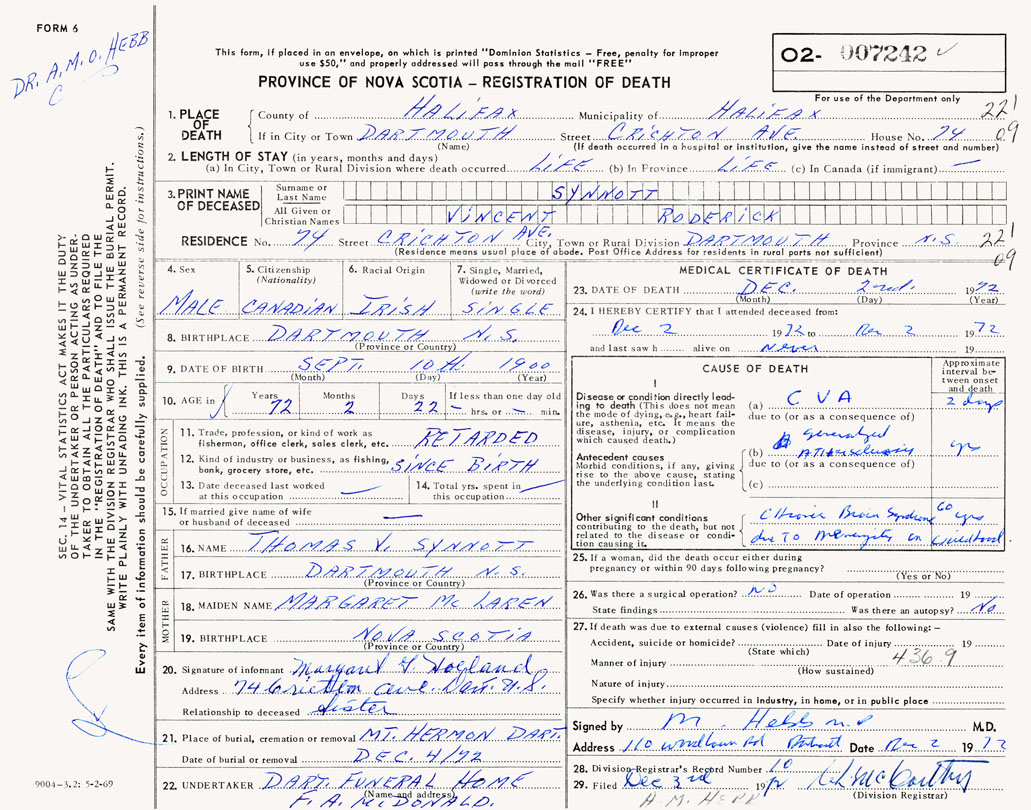 FORM 6
DR. A.M.O. HEBB
This form, if placed in an envelope, on which is printed "Dominion Statistics – Free, penalty for improper
use $50," and properly addressed will pass through the mail "FREE"
PROVINCE OF NOVA SCOTIA – REGISTRATION OF DEATH
02- 007242
For use of the Department only
1. PLACE OF DEATH County of HALIFAX Municipality of HALIFAX 221
If in City or Town DARTMOUTH Street CRICHTON AVE. House No. 74 09
(Name) (If death occurred in a hospital or institution, give the name instead of street and number)
2. LENGTH OF STAY (in years, months and days)
(a) In City, Town or Rural Division where death occurred LIFE (b) In Province LIFE (c) In Canada (if immigrant) —
3. PRINT NAME OF DECEASED Surname or Last Name SYNNOTT
All Given or Christian Names VINCENT RODERICK
RESIDENCE No. 74 Street CRICHTON AVE. City, Town or Rural Division DARTMOUTH Province N.S. 221
(Residence means usual place of abode. Post Office Address for residents in rural parts not sufficient) 09
4. Sex 5. Citizenship (Nationality) 6. Racial Origin 7. Single, Married, Widowed or Divorced (write the word)
MALE CANADIAN IRISH SINGLE
8. BIRTHPLACE DARTMOUTH N.S.
(Province or Country)
9. DATE OF BIRTH SEPT. 10th. 1900
(Month) (Day) (Year)
10. AGE in Years Months Days If less than one day old
72 2 22 — hrs. or — min.
OCCUPATION
11. Trade, profession, or kind of work as
fisherman, office clerk, sales clerk, etc. RETARDED
12. Kind of industry or business, as fishing,
bank, grocery store, etc. SINCE BIRTH
13. Date deceased last worked
at this occupation —
14. Total yrs. spent in
this occupation —
15. If married give name of wife
or husband of deceased —
FATHER
16. NAME THOMAS V. SYNNOTT
17. BIRTHPLACE DARTMOUTH N.S.
(Province or Country)
MOTHER
18. MAIDEN NAME MARGARET McLAREN
19. BIRTHPLACE NOVA SCOTIA
(Province or Country)
20. Signature of informant Margaret
Address 74 Crichton Ave. Dart. N.S.
Relationship to deceased Sister
21. Place of burial, cremation or removal MT. HERMON DART.
Date of burial or removal DEC. 4/72
22. UNDERTAKER DART. FUNERAL HOME
(Name and address)
F. A. McDONALD.
MEDICAL CERTIFICATE OF DEATH
23. DATE OF DEATH DEC. 2nd. 1972
(Month) (Day) (Year)
24. I HEREBY CERTIFY that I attended deceased from:
Dec 2 1972 to Dec 2 1972
and last saw h alive on Never 19
CAUSE OF DEATH
Approximate interval between onset and death
I
Disease or condition directly leading
to death (This does not mean
the mode of dying, e.g., heart failure,
asthenia, etc. it means the
disease, injury, or complication
which caused death.)
(a) CVA 2 days
due to (or as a consequence of)
Antecedent causes
Morbid conditions, if any, giving
rise to the above cause, stating
the underlying condition last.
generalized
(b) Atherosclerosis yrs
due to (or as a consequence of)
(c)
II
Other significant conditions
contributing to the death, but not
related to the disease or condition
causing it.
Chronic Brain Syndrome 60 yrs
due to Meningitis in childhood.
25. If a woman, did the death occur either during
pregnancy or within 90 days following pregnancy?
(Yes or No)
26. Was there a surgical operation? NO Date of operation 19
State findings Was there an autopsy? No
27. If death was due to external causes (violence) fill in also the following: –
Accident, suicide or homicide? Date of injury 19
(State which)
436.9
Manner of injury
(How sustained)
Nature of injury
Specify whether injury occurred in Industry, in home, or in public place
Signed by M. Hebb M.D. M.D.
Address 110 Woodlawn Rd Date Dec 2 1972
28. Division Registrar's Record Number 10
29. Filed Dec 3rd 1972
(Division Registrar)
A.M. HEBB
SEC. 14 – VITAL STATISTICS ACT MAKES IT THE DUTY
OF THE UNDERTAKER OR PERSON ACTING AS UNDERTAKER
TO OBTAIN ALL THE PARTICULARS REQUIRED
IN THE "REGISTRATION OF DEATH" AND TO FILE THE
SAME WITH THE DIVISION REGISTRAR WHO SHALL ISSUE THE BURIAL PERMIT.
WRITE PLAINLY WITH UNFADING INK. THIS IS A PERMANENT RECORD.
Every item of information should be carefully supplied. (See reverse side for instructions.)
9004-3.2: 5-2-69